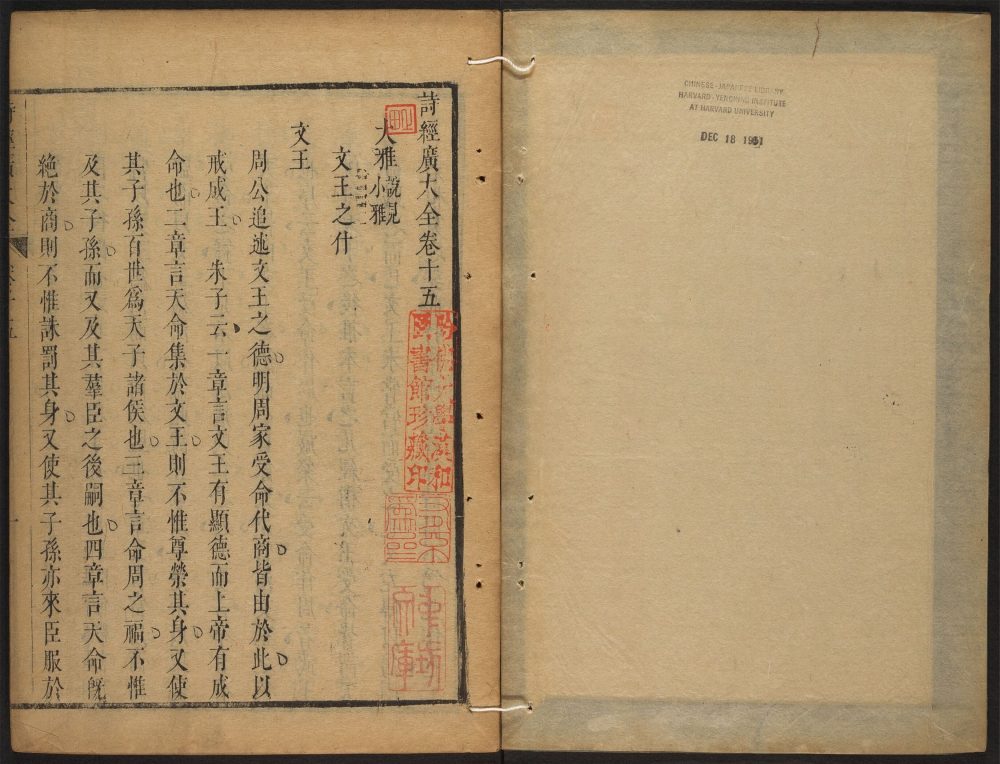 CHINESE-JAPANESE LIBRARY
HARVARD-YENCHING INSTITUTE
AT HARVARD UNIVERSITY
DEC 18 1951
詩經廣大全卷十五
大雅說見小雅
文王之什
文王
周公追述文王之德明周家受命代商皆由於此以
戒成王 朱子云一章言文王有顯德而上帝有成
命也二章言天命集於文王則不惟尊榮其身又使
其子孫百世為天子諸侯也三章言命周之福不惟
及其子孫而又及其羣臣之後嗣也四章言天命既
絕於商則不惟誅罰其身又使其子孫亦來臣服於
哈佛大學漢和
圖書館珍藏印